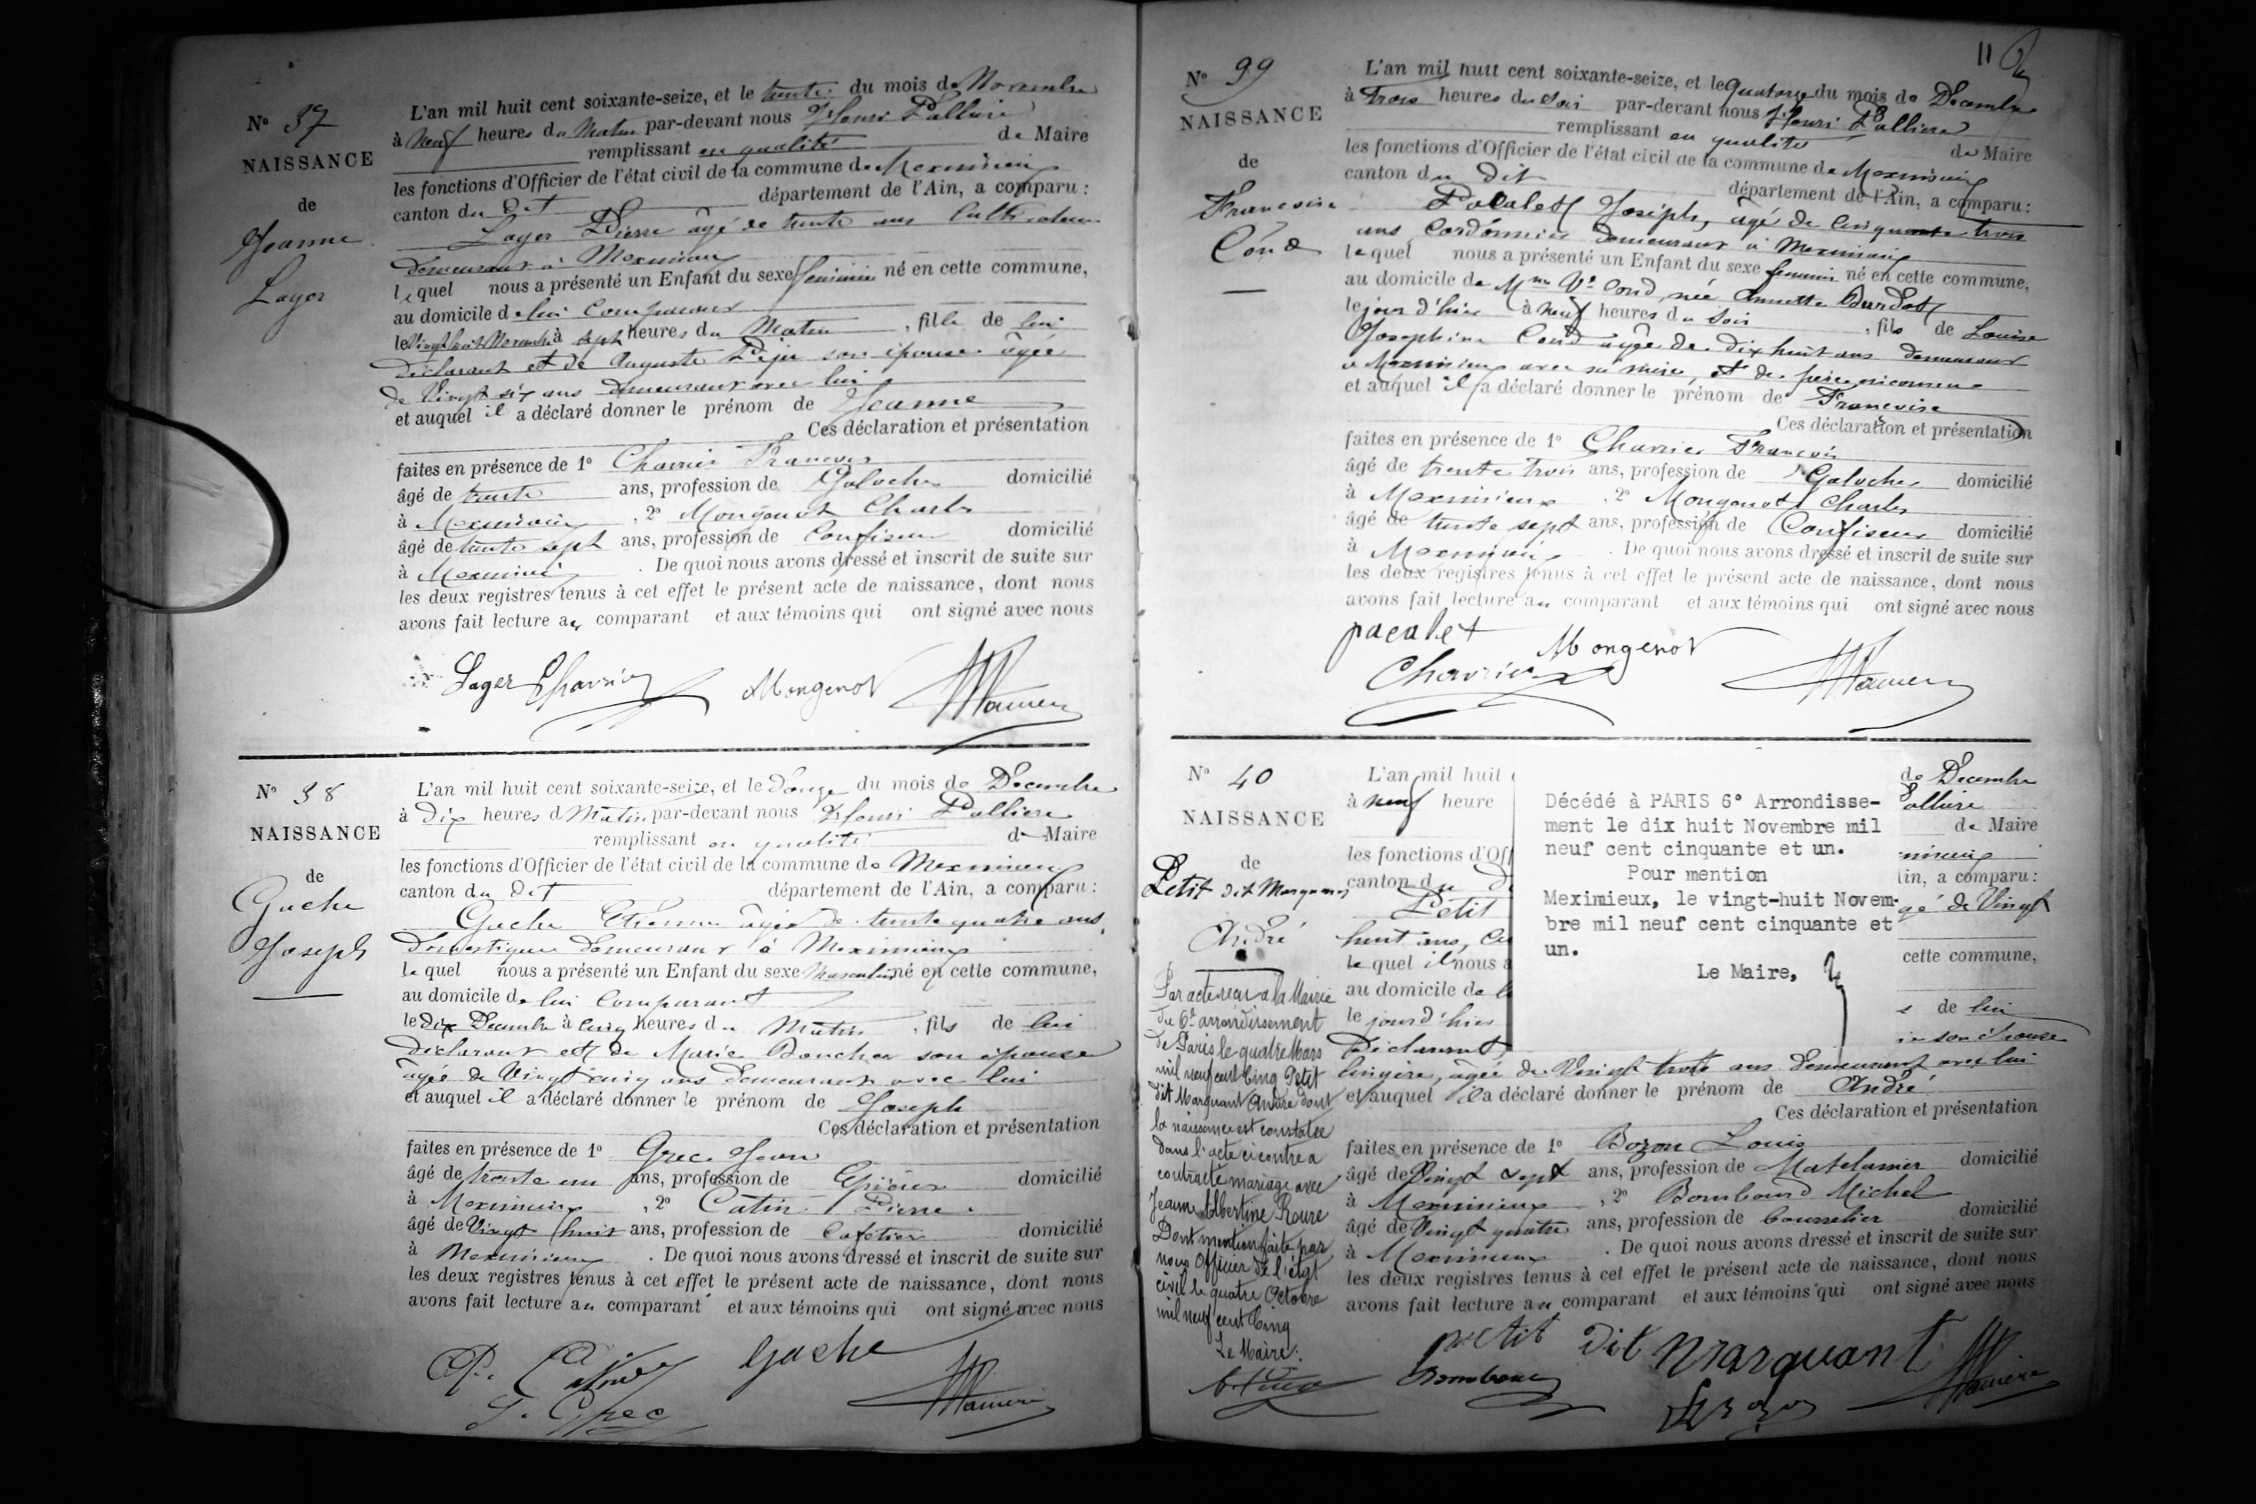 N° 37
NAISSANCE
de
Jeanne
Lager
L'an mil huit cent soixante-seize, et le trente du mois de Novembre
à neuf heures du Matin par-devant nous Henri Pallière
remplissant en qualité de Maire
les fonctions d'Officier de l'état civil de la commune de Meximieux
canton du dit département de l'Ain, a comparu :
Lager Pierre âgé de trente ans Cultivateur
demeurant à Meximieux
lequel nous a présenté un Enfant du sexe féminin né en cette commune,
au domicile de lui Comparant
le Vingt huit Novembre à sept heures du Matin, fille de lui
déclarant et de Auguste son épouse âgée
de Vingt six ans demeurant avec lui
et auquel il a déclaré donner le prénom de Jeanne
Ces déclaration et présentation
faites en présence de 1° Charrier François
âgé de trente ans, profession de Galocher domicilié
à Meximieux, 2° Mongenot Charles
âgé de trente sept ans, profession de Confiseur domicilié
à Meximieux. De quoi nous avons dressé et inscrit de suite sur
les deux registres tenus à cet effet le présent acte de naissance, dont nous
avons fait lecture au comparant et aux témoins qui ont signé avec nous
Lager Charrier Mongenot
N° 38
NAISSANCE
de
Gache
Joseph
L'an mil huit cent soixante-seize, et le Douze du mois de Decembre
à Dix heures d Matin par-devant nous Henri Pallière
remplissant en qualité de Maire
les fonctions d'Officier de l'état civil de la commune de Meximieux
canton du dit département de l'Ain, a comparu :
Gache Etienne âgé de trente quatre ans,
Domestique demeurant à Meximieux
lequel nous a présenté un Enfant du sexe Masculin né en cette commune,
au domicile de lui Comparant
le dix Decembre à cinq heures du Matin, fils de lui
déclarant et de Marie Boucher son épouse
âgée de Vingt cinq ans demeurant avec lui
et auquel il a déclaré donner le prénom de Joseph
Ces déclaration et présentation
faites en présence de 1° Grec Jean
âgé de trente un ans, profession de Epicier domicilié
à Meximieux, 2° Catin Pierre
âgé de Vingt huit ans, profession de Cafetier domicilié
à Meximieux. De quoi nous avons dressé et inscrit de suite sur
les deux registres tenus à cet effet le présent acte de naissance, dont nous
avons fait lecture au comparant et aux témoins qui ont signé avec nous
P. Catin Gache
J. Grec
11
N° 99
NAISSANCE
de
Francoise
Cond
L'an mil huit cent soixante-seize, et le Quatorze du mois de Decembre
à Trois heures du Soir par-devant nous Henri Pallière
remplissant en qualité de Maire
les fonctions d'Officier de l'état civil de la commune de Meximieux
canton du dit département de l'Ain, a comparu :
Pacalet Joseph, âgé de Cinquante trois
ans Cordonnier demeurant à Meximieux
lequel nous a présenté un Enfant du sexe féminin né en cette commune,
au domicile de Mme Ve Cond née Annette
le jour d'hier à neuf heures du Soir, fils de Louise
Josephine Cond âgée de dix huit ans demeurant
à Meximieux avec sa mère, et de père inconnu
et auquel il a déclaré donner le prénom de Francoise
Ces déclaration et présentation
faites en présence de 1° Charrier François
âgé de trente Trois ans, profession de Galocher domicilié
à Meximieux, 2° Mongenot Charles
âgé de trente sept ans, profession de Confiseur domicilié
à Meximieux. De quoi nous avons dressé et inscrit de suite sur
les deux registres tenus à cet effet le présent acte de naissance, dont nous
avons fait lecture au comparant et aux témoins qui ont signé avec nous
pacalet Mongenot
Charrier
N° 40
NAISSANCE
de
Petit dit Marquant
André
Par acte reçu à la Mairie
du 6e arrondissement
de Paris le quatre Mars
mil neuf cent Cinq Petit
dit Marquant André dont
la naissance est constatée
dans l'acte ci contre a
contracté mariage avec
Jeanne Albertine Roure
Dont mention faite par
nous Officier de l'état
civil le quatre Octobre
mil neuf cent Cinq
Le Maire.
L'an mil huit
de Decembre
à neuf heure
Pallière
de Maire
les fonctions d'Off
canton du
lin, a comparu :
Petit
gé de Vingt
huit ans,
lequel il nous a
cette commune,
au domicile de
le jour d'hier
de lui
Déclarant,
son épouse
lingère, âgée de Vingt trois ans demeurant avec lui
et auquel il a déclaré donner le prénom de André
Ces déclaration et présentation
faites en présence de 1° Bozon Louis
âgé de Vingt sept ans, profession de Matelassier domicilié
à Meximieux, 2° Bombourd Michel
âgé de Vingt quatre ans, profession de bourrelier domicilié
à Meximieux. De quoi nous avons dressé et inscrit de suite sur
les deux registres tenus à cet effet le présent acte de naissance, dont nous
avons fait lecture au comparant et aux témoins qui ont signé avec nous
petit dit Marquant
Décédé à PARIS 6° Arrondisse-
ment le dix huit Novembre mil
neuf cent cinquante et un.
Pour mention
Meximieux, le vingt-huit Novem-
bre mil neuf cent cinquante et
un.
Le Maire,